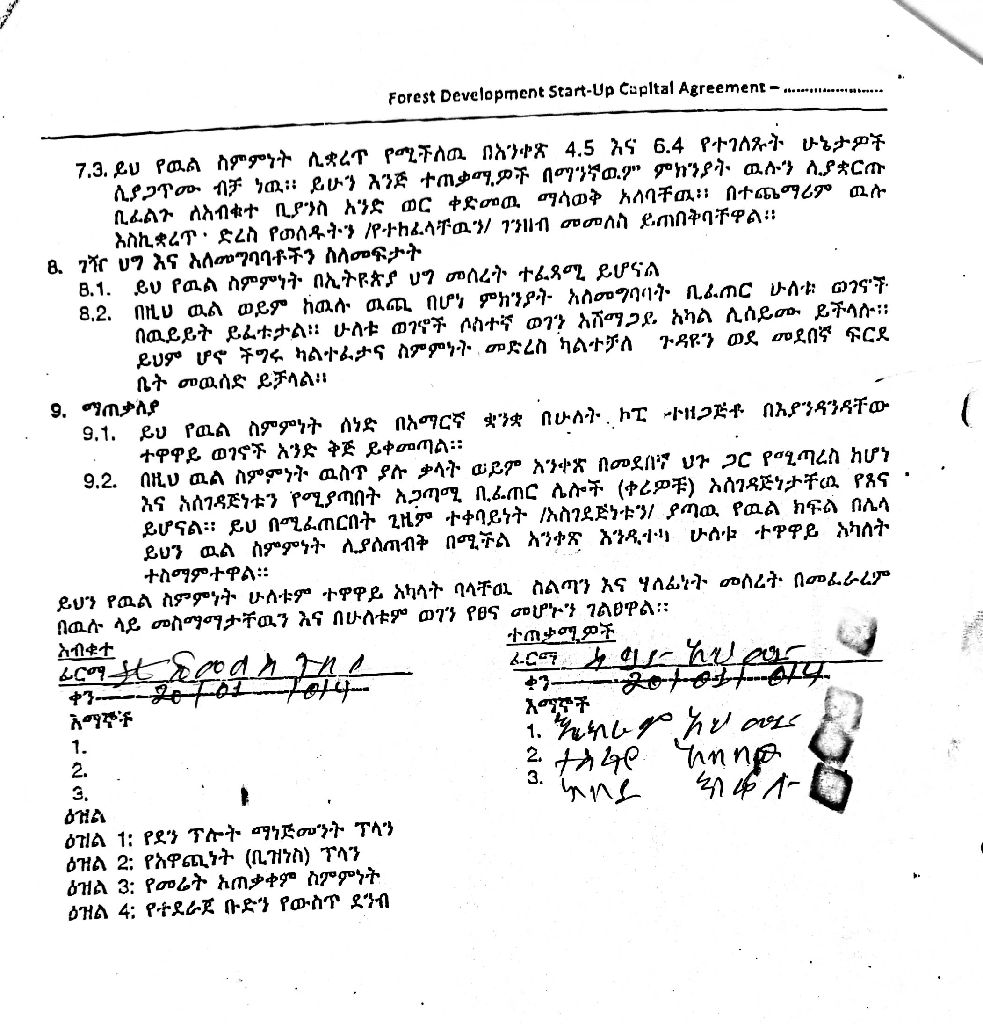 Forest Development Start-Up Capital Agreement – ........................
7.3. ይህ የዉል ስምምነት ሊቋረጥ የሚችለዉ በአንቀጽ 4.5 እና 6.4 የተገለጹት ሁኔታዎች
ሲያጋጥሙ ብቻ ነዉ። ይሁን እንጅ ተጠቃሚዎች በማንኛዉም ምክንያት ዉሉን ሲያቋርጡ
ቢፈልጉ ለአብቁተ ቢያንስ አንድ ወር ቀድመዉ ማሳወቅ አለባቸዉ። በተጨማሪም ዉሉ
እስኪቋረጥ ድረስ የወሰዱትን /የተከፈላቸዉን/ ገንዘብ መመለስ ይጠበቅባቸዋል።
8. ገዥ ህግ እና አለመግባባቶችን ስለመፍታት
8.1. ይህ የዉል ስምምነት በኢትዮጵያ ህግ መሰረት ተፈጻሚ ይሆናል
8.2. በዚህ ዉል ወይም ከዉሉ ዉጪ በሆነ ምክንያት አለመግባባት ቢፈጠር ሁለቱ ወገኖች
በዉይይት ይፈቱታል። ሁለቱ ወገኖች ሶስተኛ ወገን አሸማጋይ አካል ሊሰይሙ ይችላሉ።
ይህም ሆኖ ችግሩ ካልተፈታና ስምምነት መድረስ ካልተቻለ ጉዳዩን ወደ መደበኛ ፍርድ
ቤት መዉሰድ ይቻላል።
9. ማጠቃለያ
9.1. ይህ የዉል ስምምነት ሰነድ በአማርኛ ቋንቋ በሁለት ኮፒ ተዘጋጅቶ በእያንዳንዳቸው
ተዋዋይ ወገኖች አንድ ቅጅ ይቀመጣል።
9.2. በዚህ ዉል ስምምነት ዉስጥ ያሉ ቃላት ወይም አንቀጽ በመደበኛ ህጉ ጋር የሚጣረስ ከሆነ
እና አስገዳጅነቱን የሚያጣበት አጋጣሚ ቢፈጠር ሌሎች (ቀሪዎቹ) አስገዳጅነታቸዉ የጸና
ይሆናል። ይህ በሚፈጠርበት ጊዜም ተቀባይነት /አስገደጅነቱን/ ያጣዉ የዉል ክፍል በሌላ
ይህን ዉል ስምምነት ሊያስጠብቅ በሚችል አንቀጽ እንዲተካ ሁለቱ ተዋዋይ አካለት
ተስማምተዋል።
ይህን የዉል ስምምነት ሁለቱም ተዋዋይ አካላት ባላቸዉ ስልጣን እና ሃለፊነት መሰረት በመፈራረም
በዉሉ ላይ መስማማታቸዉን እና በሁለቱም ወገን የፀና መሆኑን ገልፀዋል።
አብቁተ
ፊርማ
ቀን 20/01/014
እማኞች
1.
2.
3.
ተጠቃሚዎች
ፊርማ
ቀን 20/01/014
እማኞች
1.
2.
3.
ዕዝል
ዕዝል 1: የደን ፕሎት ማነጅመንት ፕላን
ዕዝል 2: የአዋጪነት (ቢዝነስ) ፕላን
ዕዝል 3: የመሬት አጠቃቀም ስምምነት
ዕዝል 4: የተደራጀ ቡድን የውስጥ ደንብ